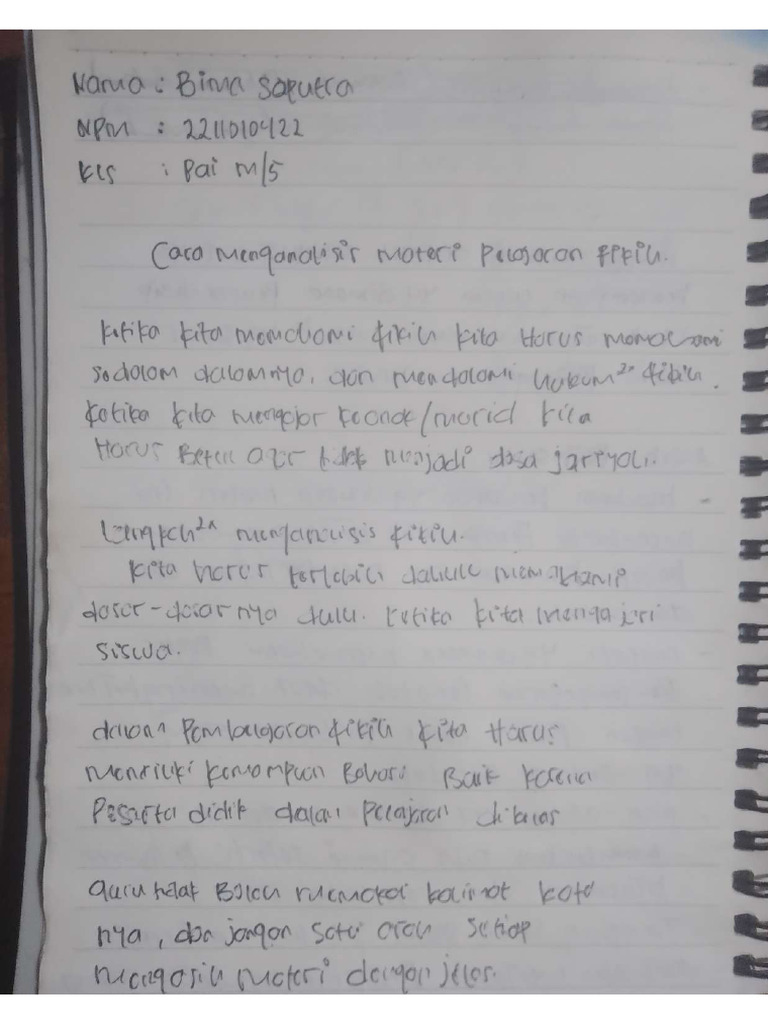 Nama : Bima Saputra
NPM : 2211010422
Kls : Pai M/5
Cara menganalisis materi Pelajaran fikih.
Ketika kita memahami fikih kita Harus memahami
sedalam dalamnya, dan mendalami hukum²n fikih.
Ketika kita mengajar keanak/murid kita
Harus Betul agar tidak menjadi dosa jariyah.
Langkah²n menganalisis fikih.
Kita harus terlebih dahulu memahami
dasar-dasarnya dulu. Ketika kita mengajari
siswa.
dalam Pembelajaran fikih kita Harus
memiliki kemampuan Baik karena
Peserta didik dalam pelajaran dikelas
guru tidak Boleh kalimat kata
nya, dan jangan satu arah setiap
mengasih materi dengan jelas.